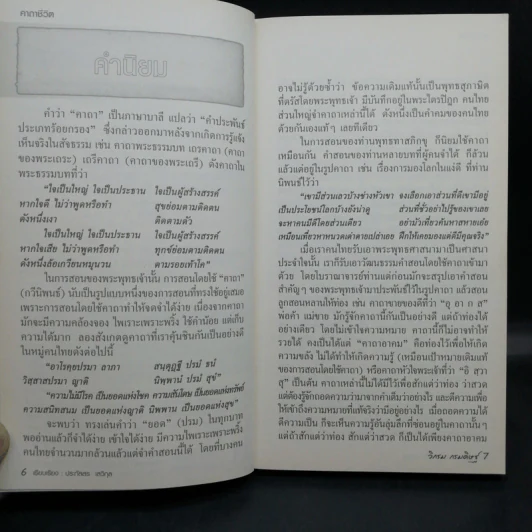 คาถาชีวิต
คำนิยม
คำว่า “คาถา” เป็นภาษาบาลี แปลว่า “คำประพันธ์
ประเภทร้อยกรอง” ซึ่งกล่าวออกมาหลังจากเกิดการรู้แจ้ง
เห็นจริงในสัจธรรม เช่น คาถาพระธรรมบท เถรคาถา (คาถา
ของพระเถระ) เถรีคาถา (คาถาของพระเถรี) ดังคาถาใน
พระธรรมบทที่ว่า
“ใจเป็นใหญ่ ใจเป็นประธาน ใจเป็นผู้สร้างสรรค์
หากใจดี ไม่ว่าพูดหรือทำ สุขย่อมตามติดตน
ดังหนึ่งเงา ติดตามตัว
ใจเป็นใหญ่ ใจเป็นประธาน ใจเป็นผู้สร้างสรรค์
หากใจเสีย ไม่ว่าพูดหรือทำ ทุกข์ย่อมตามติดตน
ดังหนึ่งล้อเกวียนหมุนวน ตามรอยเท้าโค”
ในการสอนของพระพุทธเจ้านั้น การสอนโดยใช้ “คาถา”
(กวีนิพนธ์) นับเป็นรูปแบบหนึ่งของการสอนที่ทรงใช้อยู่เสมอ
เพราะการสอนโดยใช้คาถาทำให้จดจำได้ง่าย เนื่องจากคาถา
มักจะมีความคล้องจอง ไพเราะเพราะพริ้ง ใช้คำน้อย แต่เก็บ
ความได้มาก ลองสังเกตดูคาถาที่เราคุ้นชินกันเป็นอย่างดี
ในหมู่คนไทยดังต่อไปนี้
“อาโรคฺยปรมา ลาภา สนฺตุฏฺฐี ปรมํ ธนํ
วิสฺสาสปรมา ญาติ นิพฺพานํ ปรมํ สุขํ”
“ความไม่มีโรค เป็นยอดแห่งโชค ความสันโดษ เป็นยอดแห่งทรัพย์
ความสนิทสนม เป็นยอดแห่งญาติ นิพพาน เป็นยอดแห่งสุข”
จะพบว่า ทรงเล่นคำว่า “ยอด” (ปรม) ในทุกบาท
พออ่านแล้วก็จำได้ง่าย เข้าใจได้ง่าย มีความไพเราะเพราะพริ้ง
คนไทยจำนวนมากล้วนแล้วแต่จำคำสอนนี้ได้ โดยที่บางคน
6 เรียบเรียง : ประภัสสร เสวิกุล
อาจไม่รู้ด้วยซ้ำว่า ข้อความเดิมแท้นั้นเป็นพุทธสุภาษิต
ที่ตรัสโดยพระพุทธเจ้า มีบันทึกอยู่ในพระไตรปิฎก คนไทย
ส่วนใหญ่จำคาถาเหล่านี้ได้ ดังหนึ่งเป็นคำคมของคนไทย
ด้วยกันเองแท้ๆ เลยทีเดียว
ในการสอนของท่านพุทธทาสภิกขุ ก็นิยมใช้คาถา
เหมือนกัน คำสอนของท่านหลายบทที่ผู้คนจำได้ ก็ล้วน
แล้วแต่อยู่ในรูปคาถา เช่น เรื่องการมองโลกในแง่ดี ที่ท่าน
นิพนธ์ไว้ว่า
“เขามีส่วนเลวบ้างช่างหัวเขา จงเลือกเอาส่วนที่ดีเขามีอยู่
เป็นประโยชน์โลกบ้างยังน่าดู ส่วนที่ชั่วอย่าไปรู้ของเขาเลย
จะหาคนมีดีโดยส่วนเดียว อย่ามัวเที่ยวค้นหาสหายเอ๋ย
เหมือนเที่ยวหาหนวดเต่าตายเปล่าเอย ฝึกให้เคยมองแต่ดีมีคุณจริง”
เมื่อเราคนไทยรับเอาพระพุทธศาสนามาเป็นศาสนา
ประจำใจนั้น เราก็รับเอาวัฒนธรรมคำสอนโดยใช้คาถาเข้ามา
ด้วย โดยโบราณาจารย์ท่านแต่ก่อนมักจะสรุปเอาคำสอน
สำคัญๆ ของพระพุทธเจ้ามาประพันธ์ไว้ในรูปคาถา แล้วสอน
ลูกสอนหลานให้ท่อง เช่น คาถาขายของดีที่ว่า “อุ อา ก ส”
พ่อค้า แม่ขาย มักรู้จักคาถานี้กันเป็นอย่างดี แต่ถ้าท่องได้
อย่างเดียว โดยไม่เข้าใจความหมาย คาถานี้ก็ไม่อาจทำให้
รวยได้ คงเป็นได้แต่ “คาถาอาคม” คือท่องไว้เพื่อให้เกิด
ความขลัง ไม่ได้ทำให้เกิดความรู้ (เหมือนเป้าหมายเดิมแท้
ของการสอนโดยใช้คาถา) หรือคาถาหัวใจพระเจ้าที่ว่า “อิ สฺวา
สุ” เป็นต้น คาถาเหล่านี้ไม่ได้มีไว้เพื่อสักแต่ว่าท่อง สักแต่ว่าสวด
แต่ต้องรู้จักถอดความว่ามาจากคำเต็มว่าอย่างไร และตีความเพื่อ
ให้เข้าถึงความหมายที่แท้จริงว่ามีอยู่อย่างไร เมื่อถอดความได้
ตีความเป็น ก็จะเห็นความรู้อันลุ่มลึกที่ซ่อนอยู่ในคาถานั้นๆ
แต่ถ้าสักแต่ว่าท่อง สักแต่ว่าสวด ก็ได้เป็นเพียงคาถาอาคม
วิกรม กรมดิษฐ์ 7